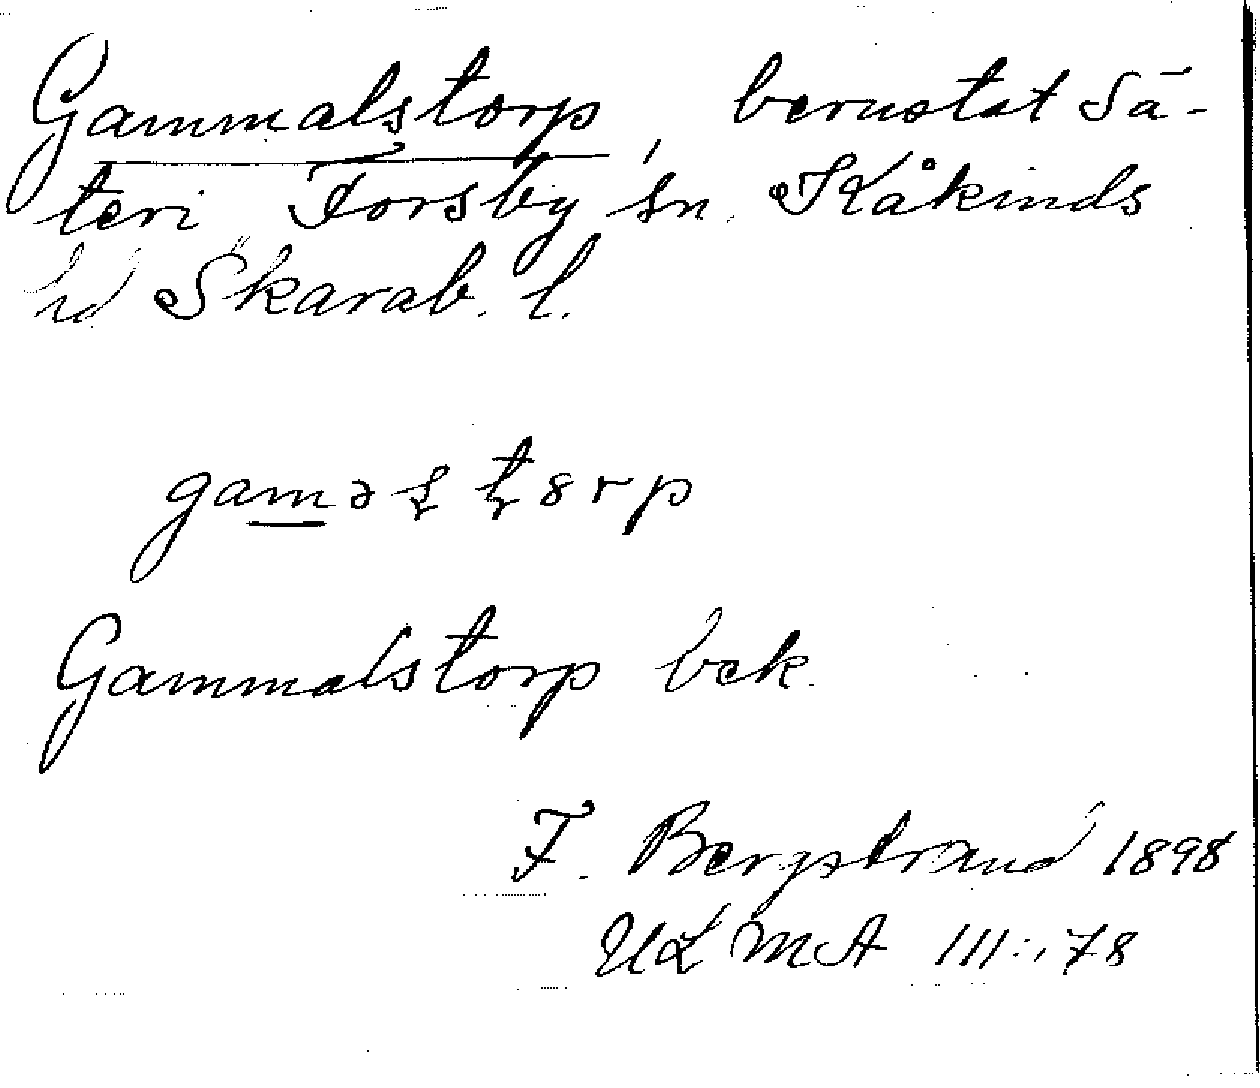 Gammalstorp, berustat Sä-
teri Forsby sn. Kåkinds
hd Skarab. l.
Gammalstorp bek.
F. Bergstrand 1898
ULMA 111:78